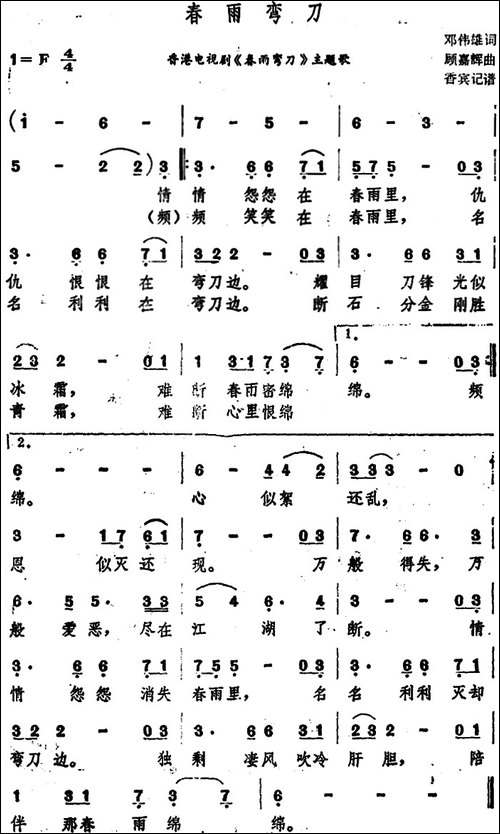 春雨弯刀
邓伟雄词
1=F 4/4 香港电视剧《春雨弯刀》主题歌 顾嘉辉曲
香宾记谱
(1 - 6 - | 7 - 5 - | 6 - 3 -
5 - 2 2) 3 |: 3· 6 6 7 1 | 5 7 5 - 0 3
情 情 怨怨 在 春雨里, 仇
(频) 频 笑笑 在 春雨里, 名
3· 6 6 7 1 | 3 2 2 - 0 3 | 3· 6 6 3 1
仇 恨恨 在 弯刀边。 耀 目 刀锋 光似
名 利利 在 弯刀边。 断 石 分金 刚胜
1.
2 3 2 - 0 1 | 1 3·1 7 3 7 | 6 - - 0 3 :|
冰 霜, 难 断 春雨密绵 绵。 频
青 霜, 难 断 心里恨绵
2.
6 - - - | 6 - 4 4 2 | 3 3 3 - 0
绵。 心 似絮 还乱,
3 - 1 7 6 1 | 7 - - 0 3 | 7· 6 6· 3
恩 似灭 还 现。 万 般 得失, 万
6· 5 5· 3 3 | 5 4 6· 4 | 3 - - 0 3
般 爱恶, 尽在 江 湖 了 断。 情
3· 6 6 7 1 | 7 5 5 - 0 3 | 3· 6 6 7 1
情 怨怨 消失 春雨里, 名 名 利利 灭却
3 2 2 - 0 3 | 3· 6 6 3 1 | 2 3 2 - 0 1
弯刀边。 独 剩 凄风 吹冷 肝 胆, 陪
1 3 1 7 3 7 | 6 - - - ‖
伴 那春 雨 绵 绵。